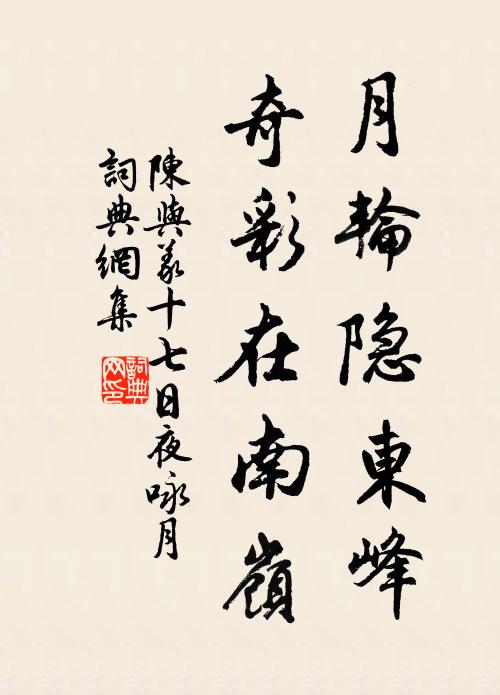 月輪隐東峰
奇彩在南嶺
陳與義十七日夜咏月
詞典網集
詞典网印